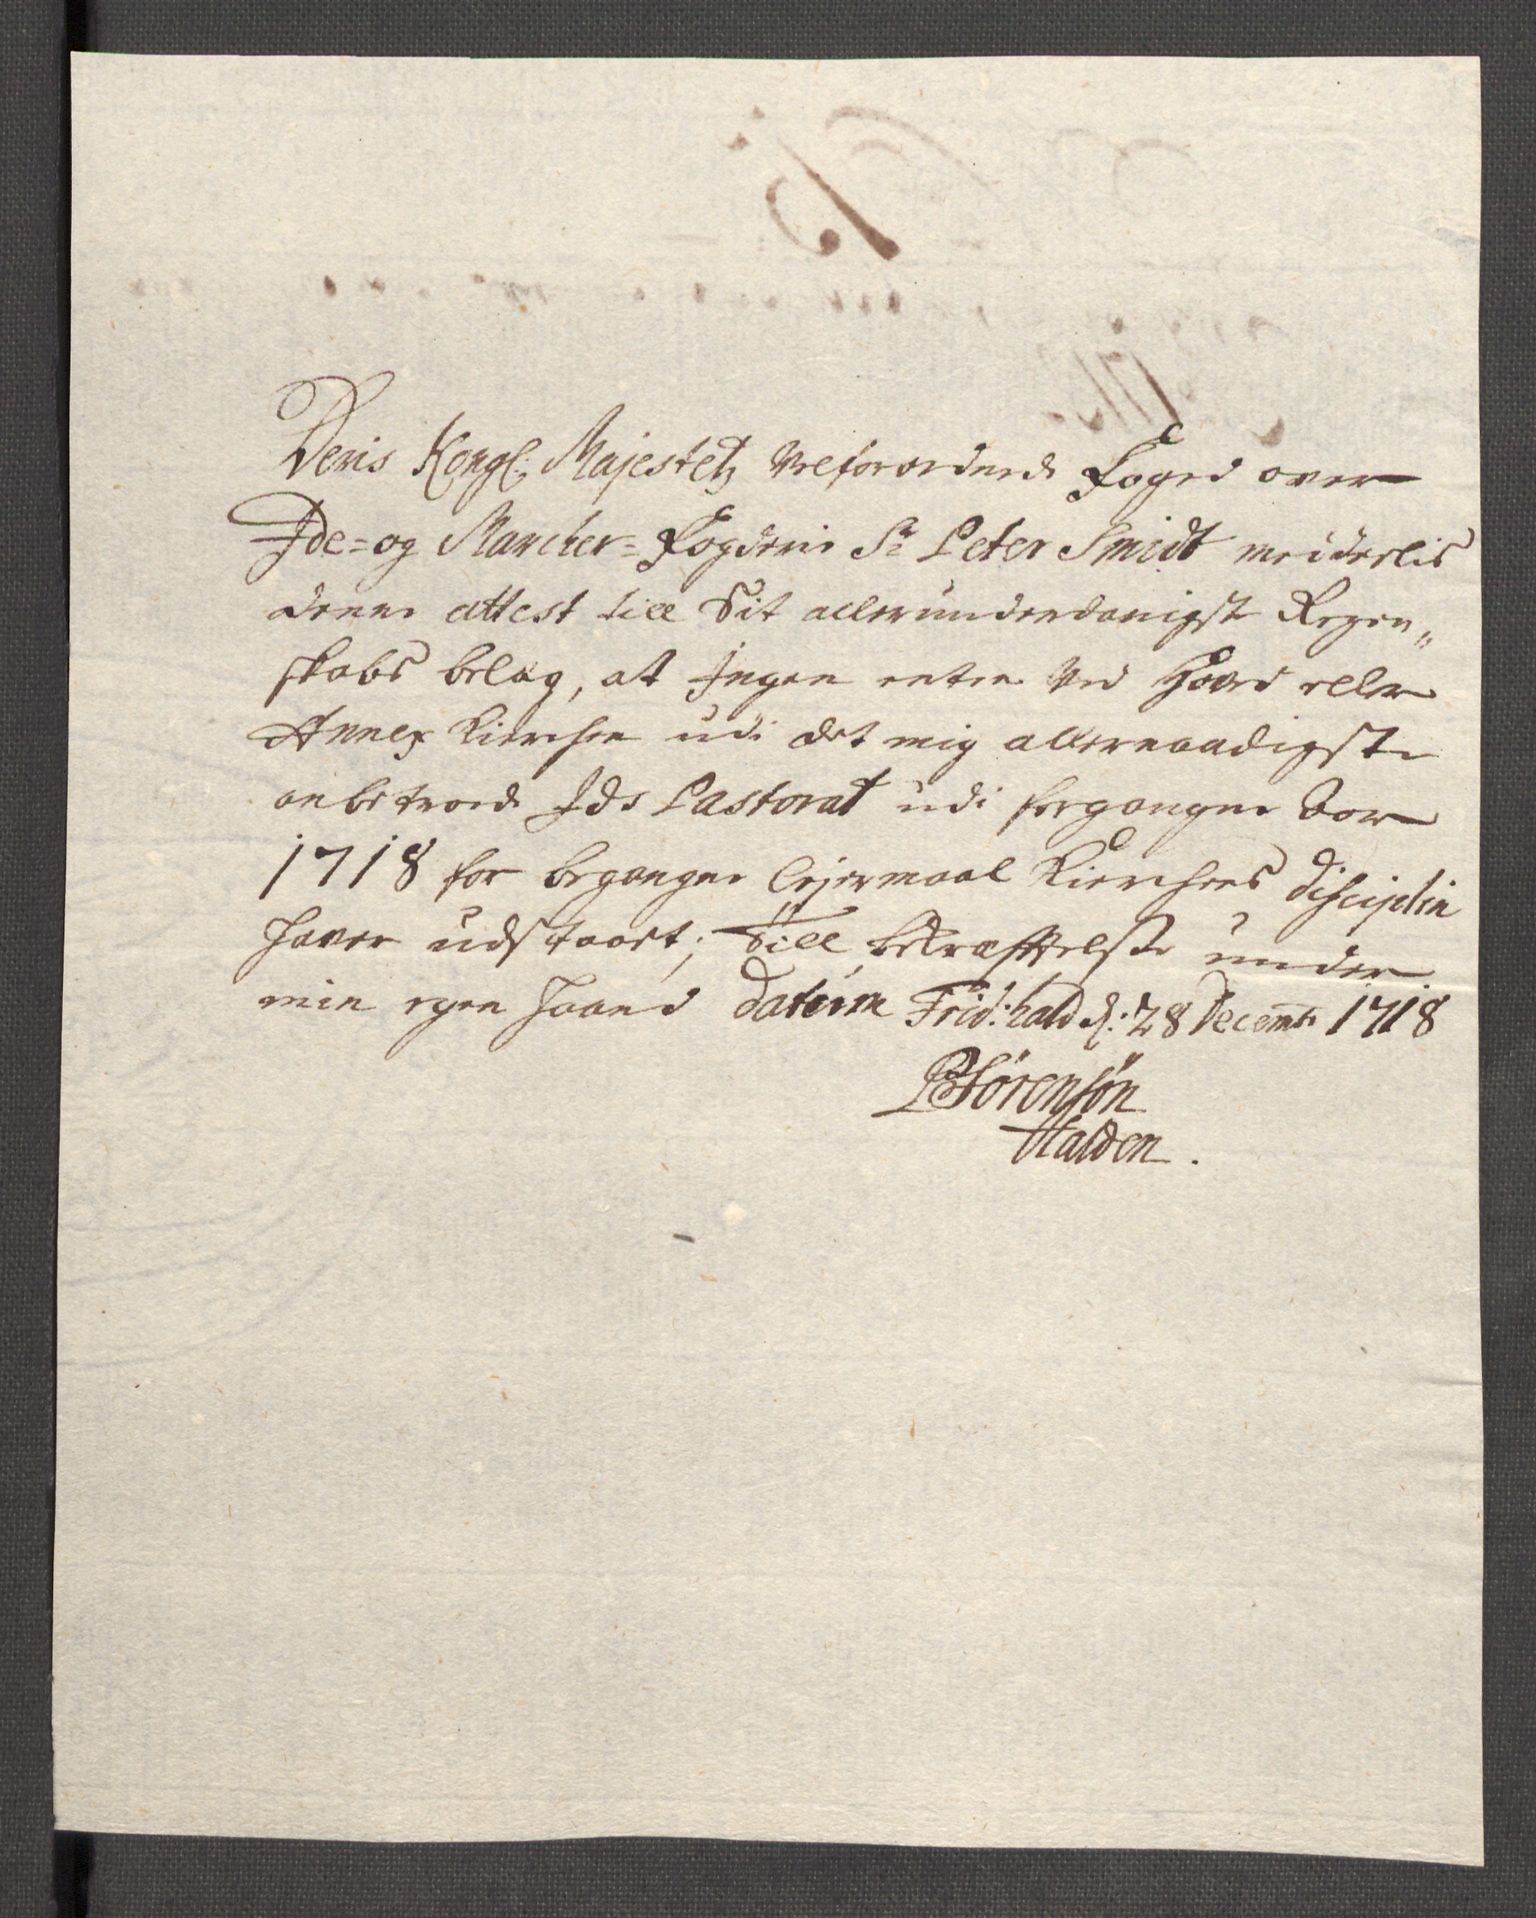 Deris Kongl. Majestetz Velforordnede Foged over
Ide= og Marcker= Fogderie Sr Peter Smidt meddeelis
denne attest till Sit allerunderdanigste Regen„
skabs belæg, at Ingen enten Ved Hoved eller
Annex Kierchen udi det mig allernaadigste
anbetroede Ids Pastorat udi forgangne Aar
1718 for begangne Lejermaal Kierchens disciplin
haver udstaaet; Till bekræfftelse under
min egen haand datum Frid:hald d: 28 Decemb: 1718
PSörensön
Halden.